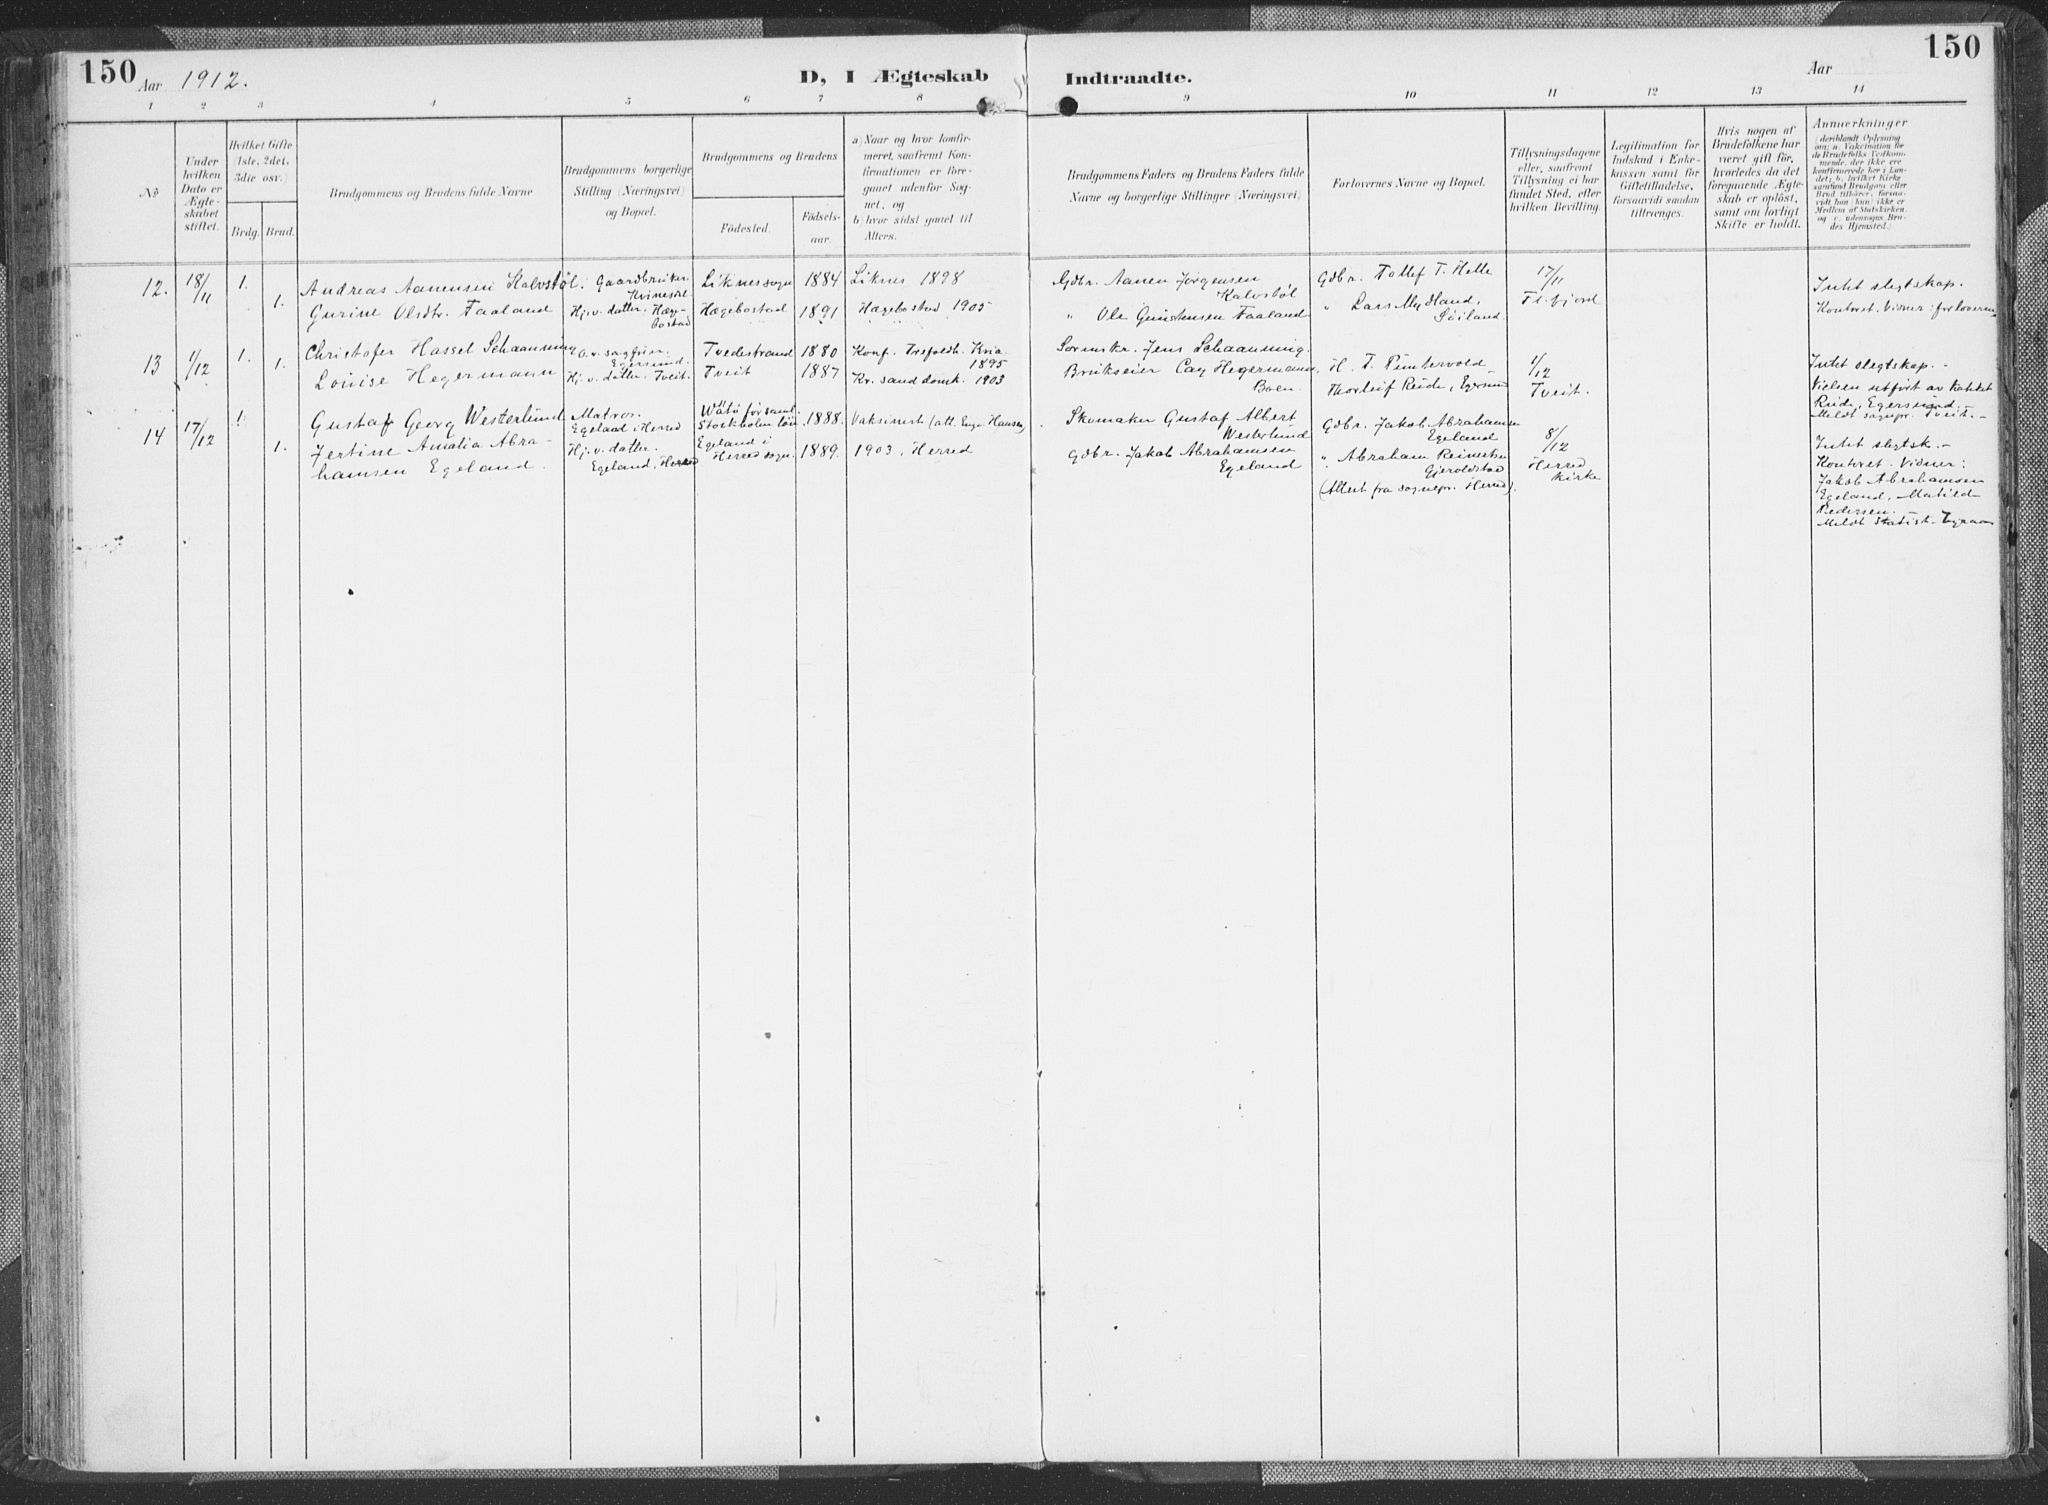 150
Aar 1912.
D, I Ægteskab
Indtraadte.
Aar
150
1 2 3 4 5 6 7 8 9 10 11 12 13 14
No
Under
hvilken
Dato er
Ægte-
skabet
stiftet.
Hvilket Gifte
(1ste, 2det,
3die osv.)
Brdg.
Brud.
Brudgommens og Brudens fulde Navne
Brudgommens borgerlige
Stilling (Næringsvei)
og Bopæl.
Brudgommens og Brudens
Fødested.
Fødsels-
aar.
a) Naar og hvor konfir-
meret, saafremt Kon-
firmationen er fore-
gaaet udenfor Sog-
net, og
b) hvor sidst gaaet til
Alters.
Brudgommens Faders og Brudens Faders fulde
Navne og borgerlige Stillinger (Næringsvei)
Forlovernes Navne og Bopæl.
Tillysningsdagene
eller, saafremt
Tillysning ei har
fundet Sted, efter
hvilken Bevilling.
Legitimation for
Indskud i Enke-
kassen samt for
Giftetilladelse,
forsaavidt saadan
tiltrænges.
Hvis nogen af
Brudefolkene har
været gift før,
hvorledes da det
foregaaende Ægte-
skab er opløst,
samt om lovligt
Skifte er holdt.
Anmerkninger
(deriblandt Oplysning
om: a. Vakcination for
de Brudefolks Vedkom-
mende, der ikke ere
konfirmerede her i Lan-
det; b. hvilket Kirke
samfund Brudgom eller
Brud tilhører, forsaa-
vidt han (hun) ikke er
Medlem af Statskirken,
og c. udensogns Bru-
des Hjemsted.)
12. 18/11 1.
1.
Andreas Aanensen Kalvstøl.
Gurine Olsdtr. Faaland
Gaardbruker
Kvinesdal
Hj. v. datter. Hæg-
bostad
Liknes sogn 1884
Hægebostad 1891
Liknes 1898
Hægebostad 1905
Gdbr. Aanen Jørgensen
Kalvstøl
" Ole Guustensen Faaland
Gdbr. Tollef T. Helle
" Lars Mydland,
Söiland
17/11
Fl. fjord
Intet slegtskap.
Kontoret. Vidner: forloverne
13 1/12 1.
1.
Christofer Hassel Schaanning
Louise Hegermann
O.r. sagfører
Egersund.
Hj. v. datter. Tveit.
Tvedestrand 1880
Tveit 1887
Konf. Trefoldh. Kria.
1895
Kr.sand domk. 1903
Sorenskr. Jens Schaanning.
Brukseier Cay Hegermann,
Boen.
H. T.
Thorleif Riide, Egersund
1/12
Tveit.
Intet slegtskap. -
Vielsen utført av Kateket
Riide, Egersund -
Meldt sognepr. Tveit. -
14 17/12 1.
1.
Gustaf Georg Westerlund
Jertine Amalia Abra-
hamsen Egeland.
Matros.
Egeland i Herred
Hj. v. datter.
Egeland, Herred
Wätö församl.
Stockholm län 1888.
Egeland i
Herred sogn. 1889.
Vaksinert
1903, Herred
Skomaker Gustaf Albert
Westerlund
Gdbr. Jakob Abrahamsen
Egeland
Gdbr. Jakob Abrahamsen
Egeland
" Abraham Reinertsen
Gjeroldstad
(Attest fra sognepr. Herred).
8/12
Herred
kirke
Intet slegtsk. -
Kontoret. Vidner:
Jakob Abrahamsen
Egeland, Matild
Pedersen. -
Meldt Statist.